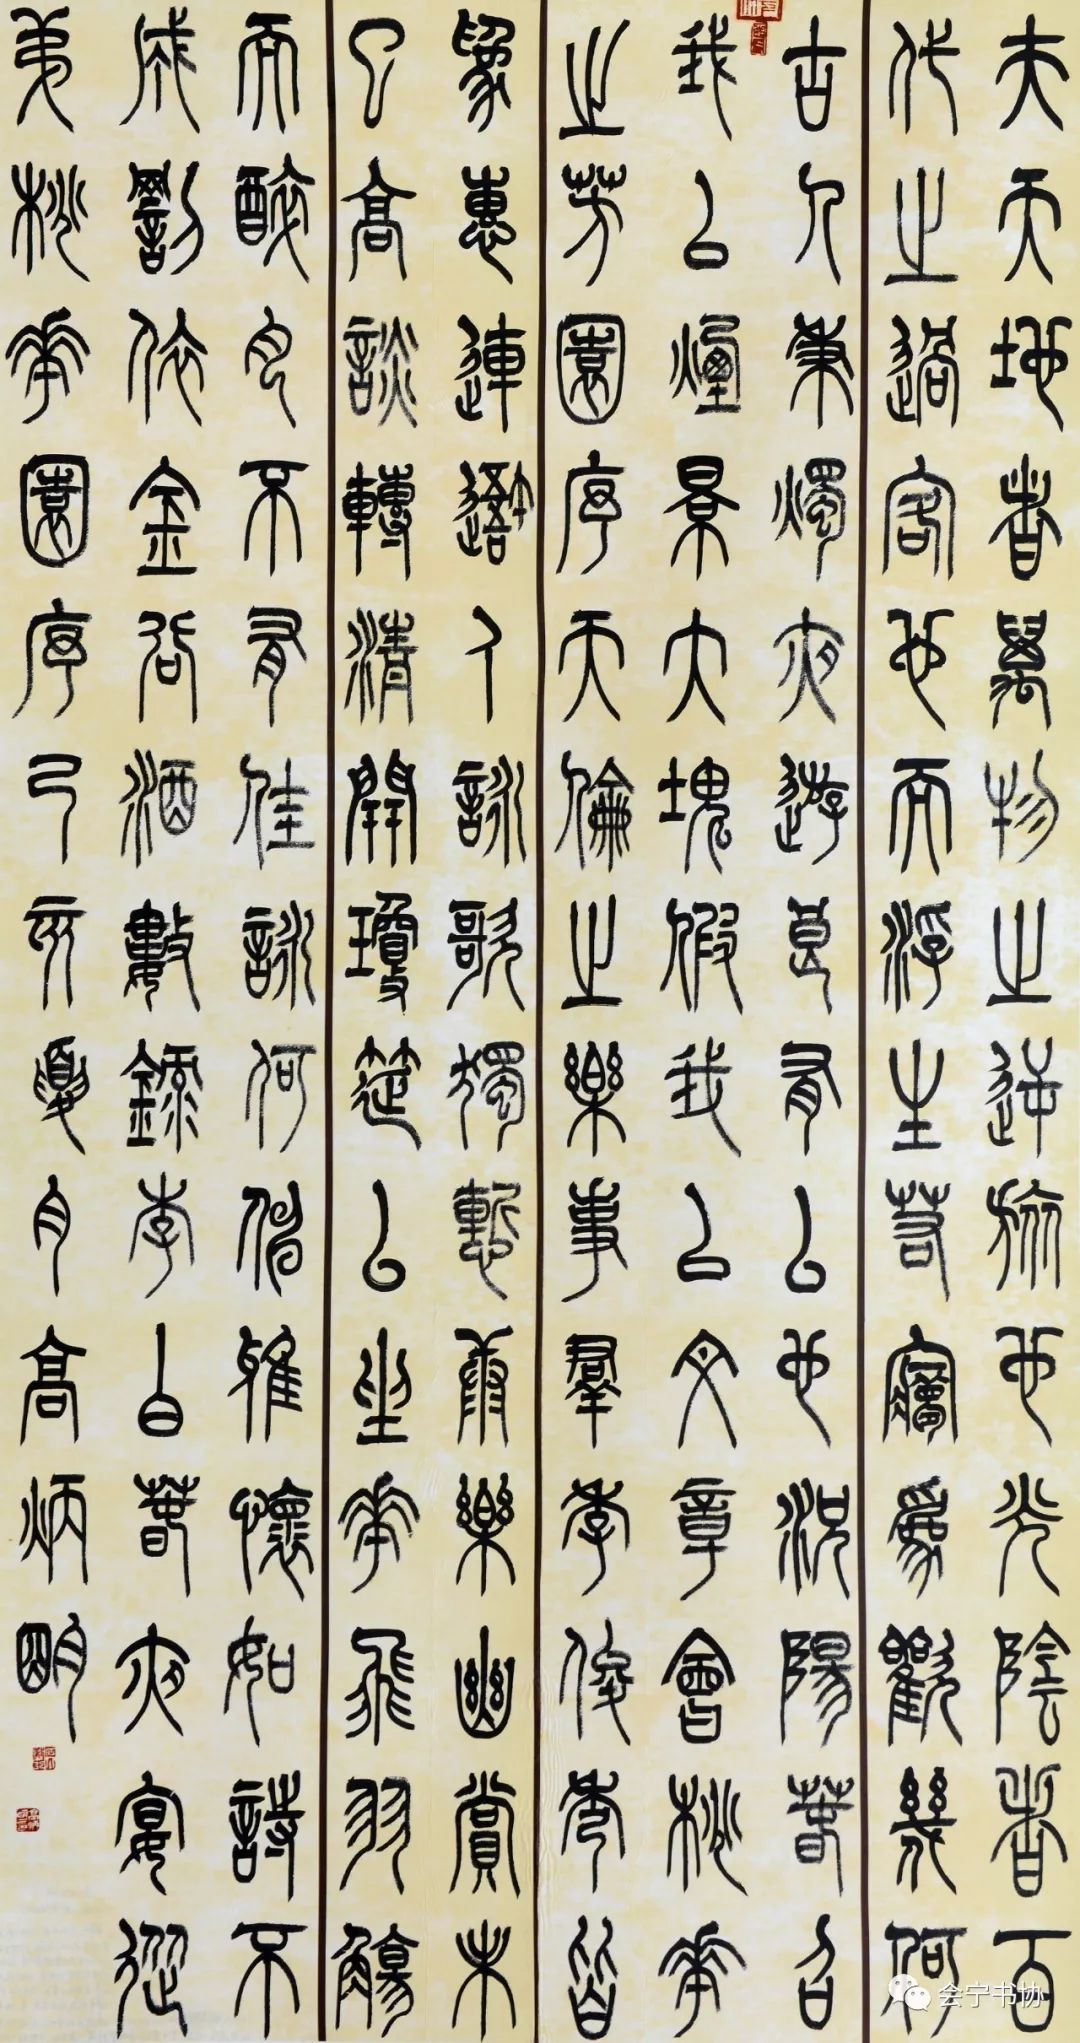 夫天地者萬物之逆旅也光陰者百
代之過客也而浮生若夢為歡幾何
古人秉燭夜遊良有以也況陽春召
我以煙景大塊假我以文章會桃花
之芳園序天倫之樂事群季俊秀皆
為惠連吾人詠歌獨慚康樂幽賞未
已高談轉清開瓊筵以坐花飛羽觴
而醉月不有佳詠何伸雅懷如詩不
成罰依金谷酒數錄李白春夜宴從
弟桃花園序己亥夏月高炳明
会宁书协